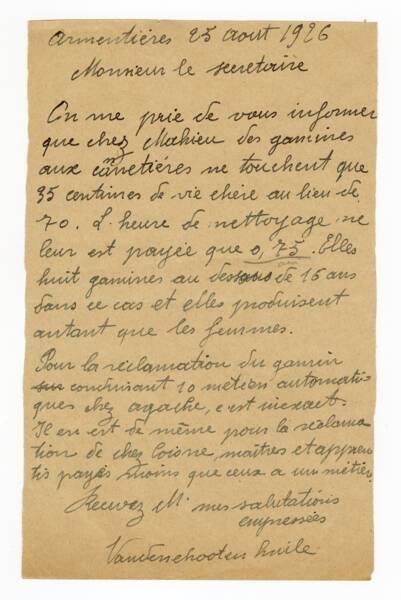 Armentières 25 aout 1926
Monsieur le secretaire
On me prie de vous informer
que chez Mahieu des gamines
aux cannetiéres ne touchent que
35 centimes de vie chère au lieu de
70. L'heure de nettoyage ne
leur est payée que 0,75. Elles
huit gamines au dessous de 16 ans
dans ce cas et elles produisent
autant que les femmes.
Pour la réclamation du gamin
conduisant 10 métiers automati-
ques chez agache, c'est inexact.
Il en est de même pour la reclama
tion de chez Loisne, maîtres et appren
tis payés moins que ceux a un métier.
Recevez M. mes salutations
empressées
Vandenchooten